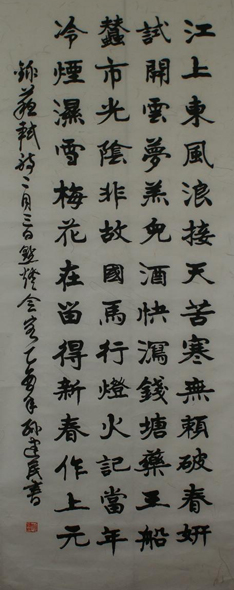 江上東風浪接天苦寒無賴破春妍
試開雲夢羔兒酒快瀉錢塘藥王船
蠶市光陰非故國馬行燈火記當年
冷煙濕雪梅花在留得新春作上元
錄蘇軾詩二月三日點燈會客乙年書